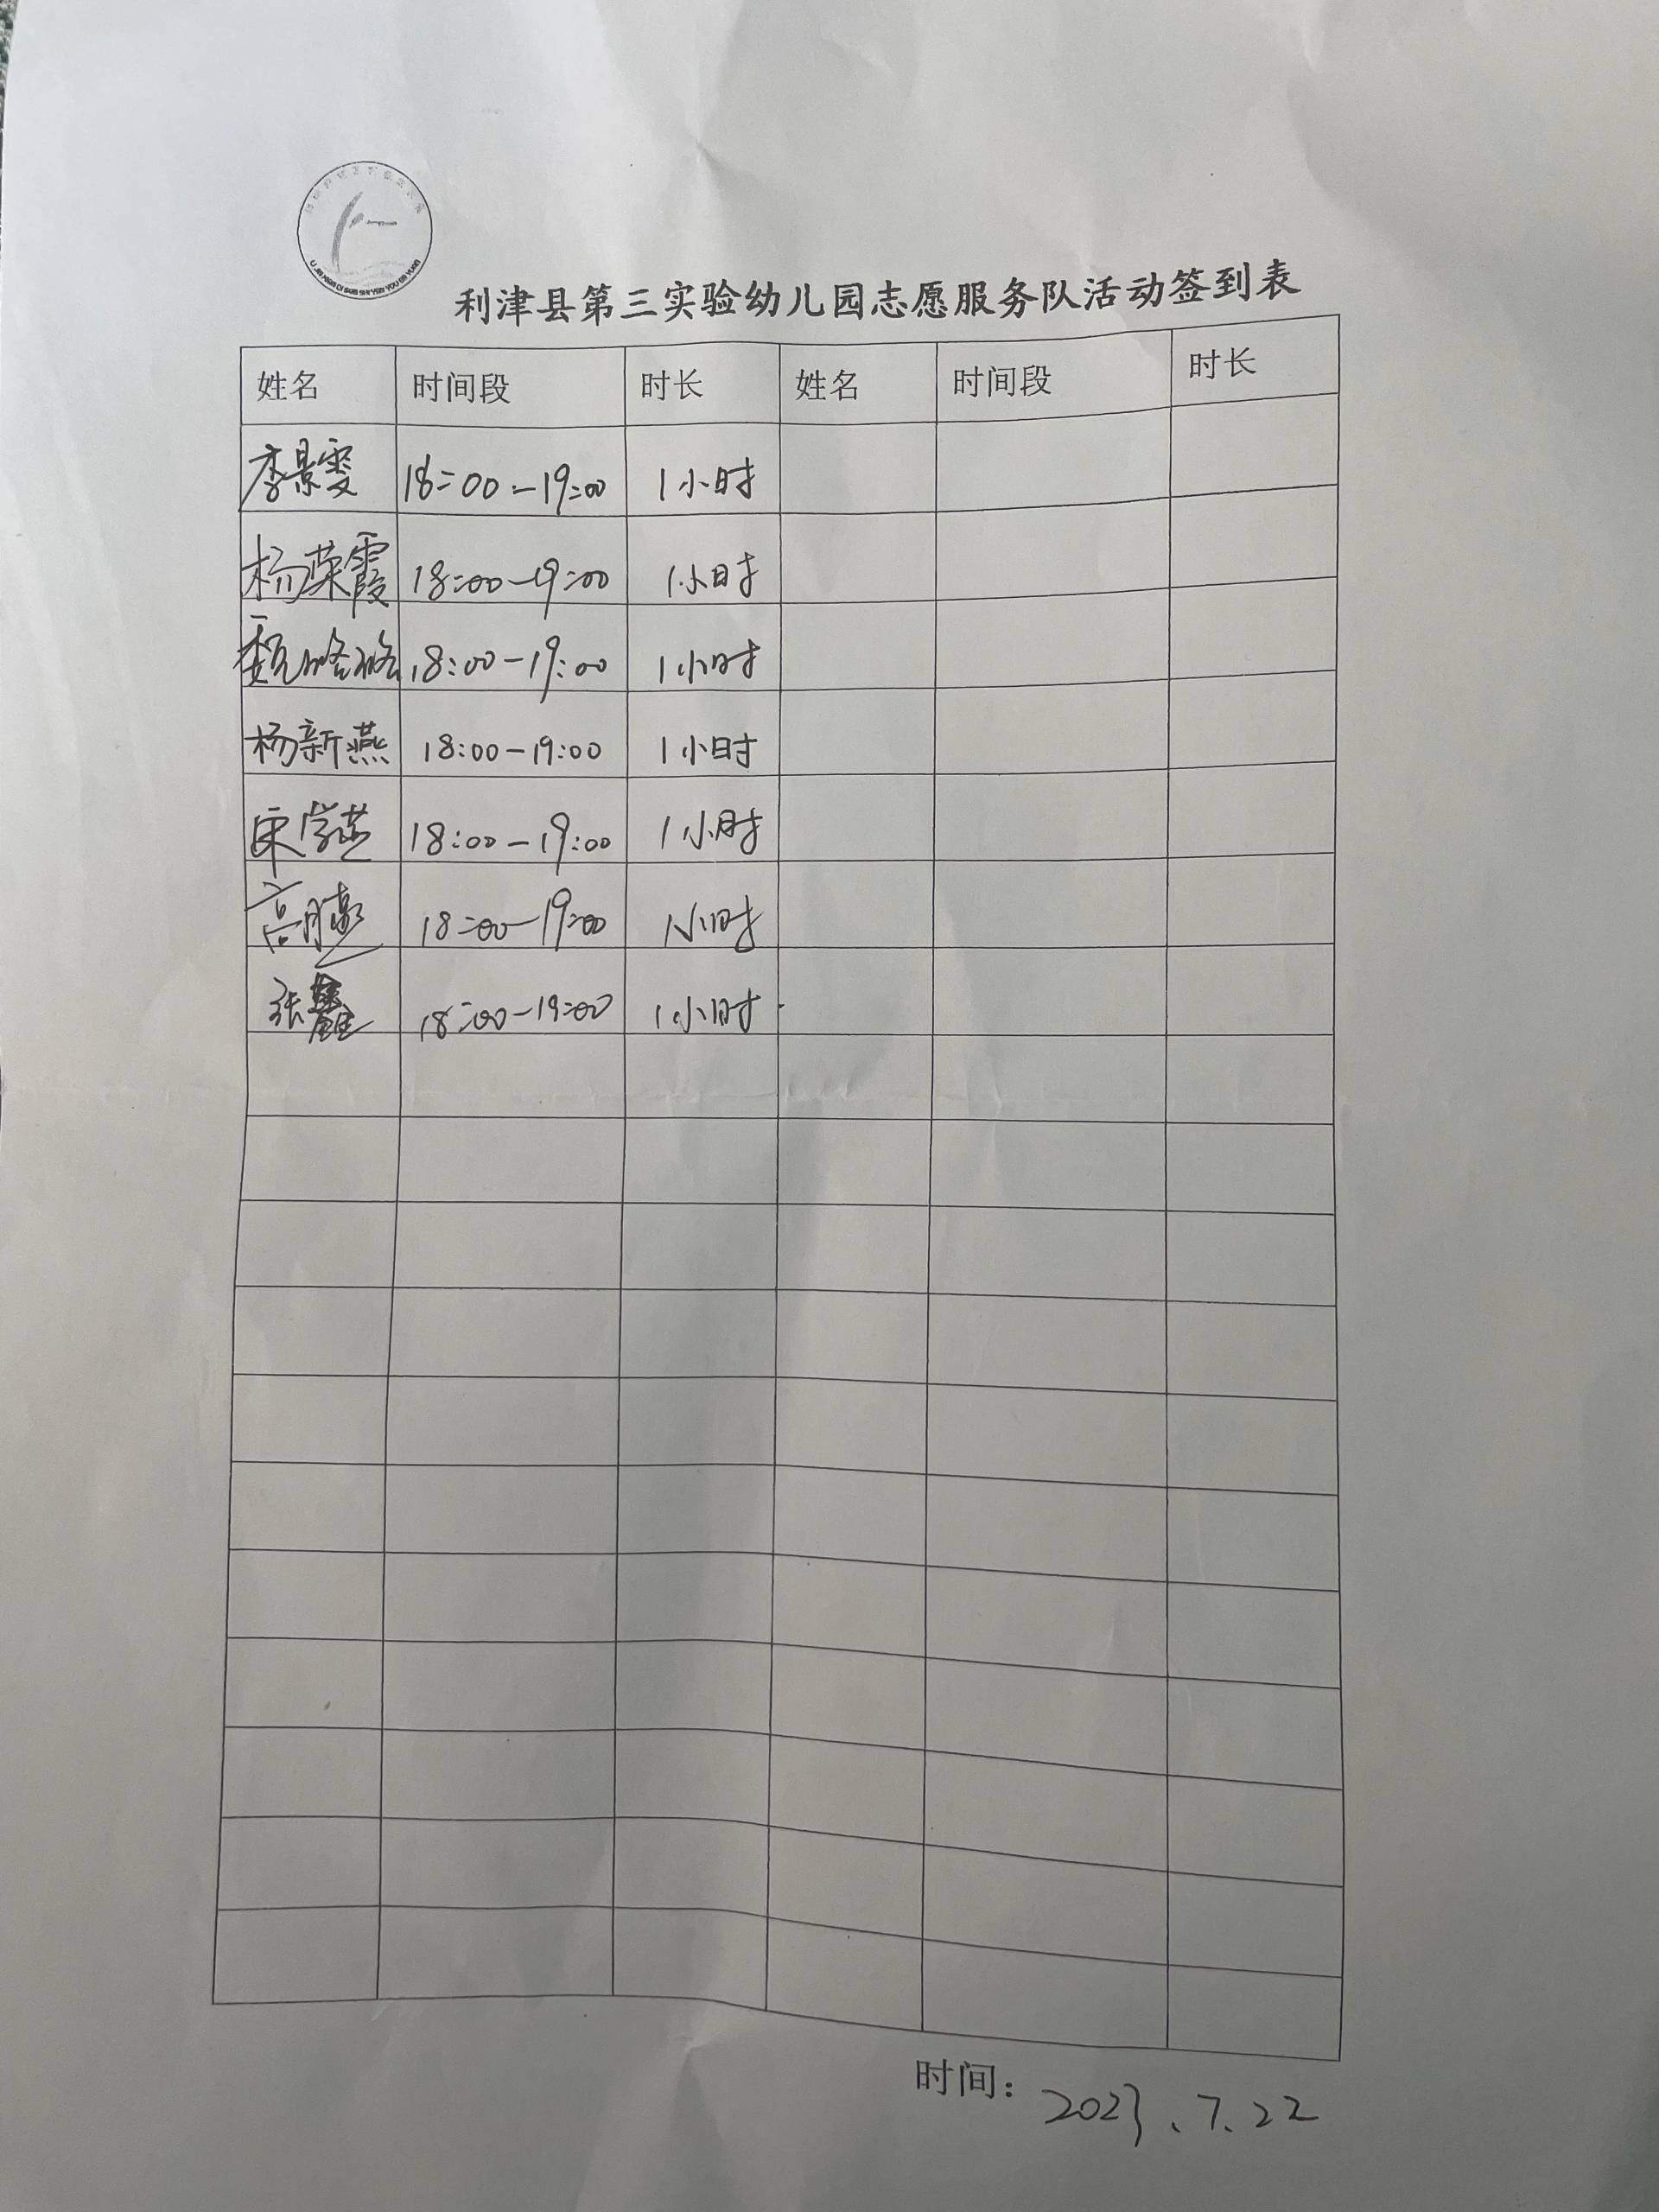 利津县第三实验幼儿园志愿服务队活动签到表
姓名 时间段 时长 姓名 时间段 时长
李景雯 18:00-19:00 1小时
杨荣霞 18:00-19:00 1小时
魏 18:00-19:00 1小时
杨新燕 18:00-19:00 1小时
宋学燕 18:00-19:00 1小时
高 18:00-19:00 1小时
张 18:00-19:00 1小时
时间: 2023.7.22